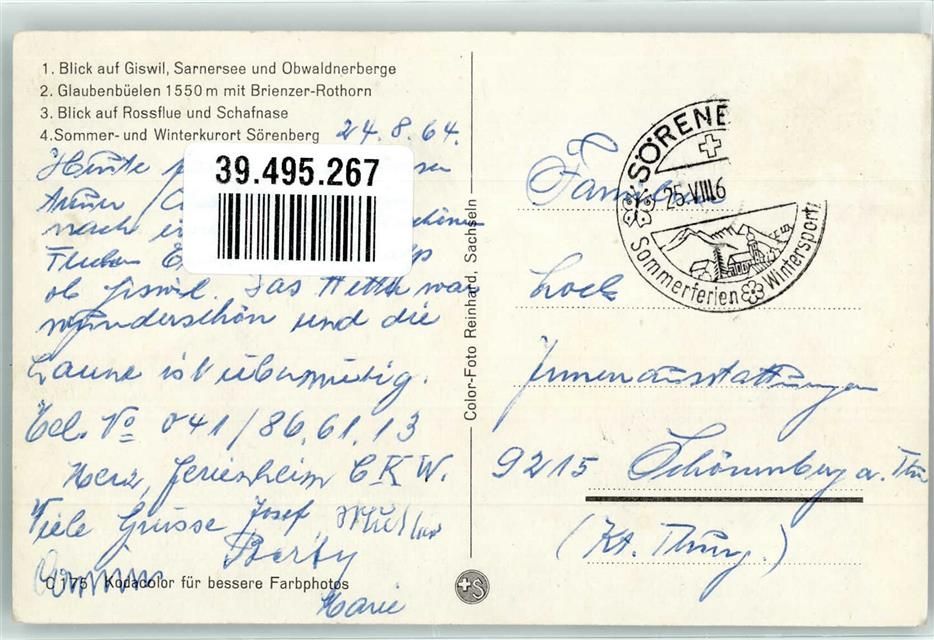 1. Blick auf Giswil, Sarnersee und Obwaldnerberge
2. Glaubenbüelen 1550 m mit Brienzer-Rothorn
3. Blick auf Rossflue und Schafnase
4. Sommer- und Winterkurort Sörenberg
24. 8. 64.
Heute
39.495.267
nach
ob Giswil. Das Wetter war
wunderschön und die
Laune ist übermütig.
Tel. No 041/86.61.13
Ferienheim C K W.
Viele Grüsse Josef
Berty
Marie
C 175 Kodacolor für bessere Farbphotos
Color-Foto Reinhard, Sachseln
+S
SÖRENBE
25.VIII.6
Sommerferien Wintersport
Familie
Lock
Innenausstattungen
9215 Schönenberg a. Thur
(Kt. Thurg.)